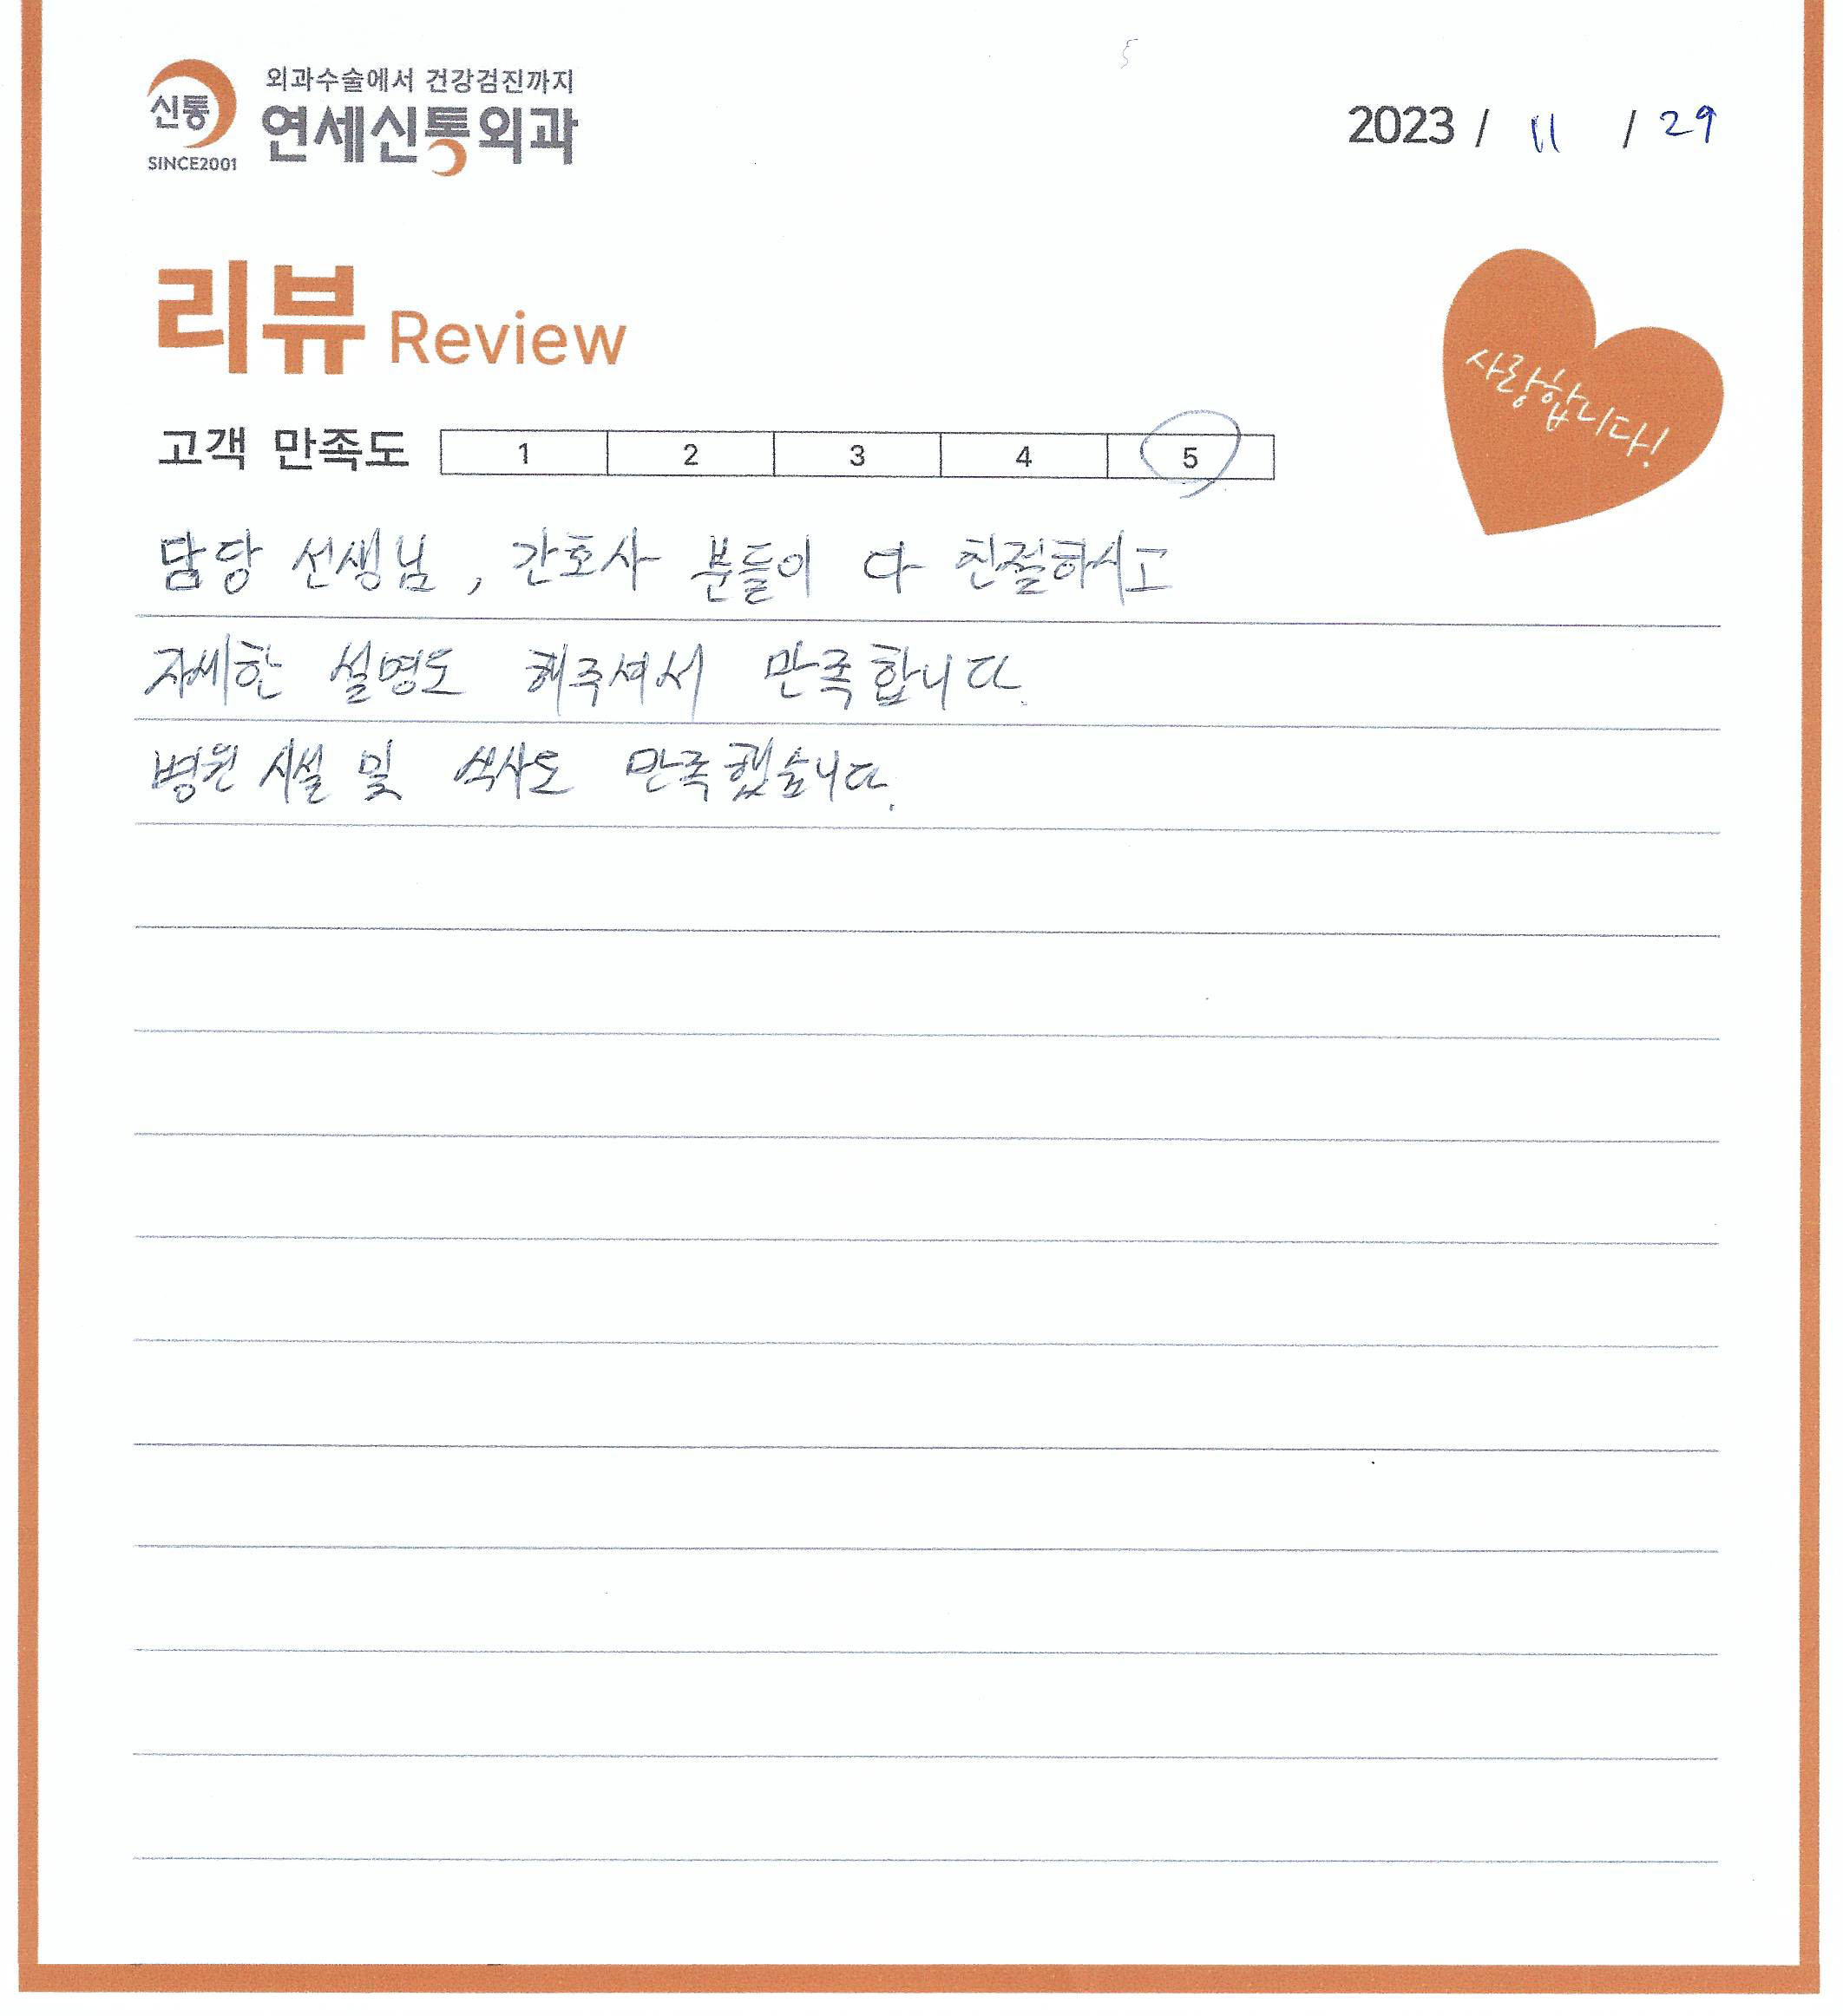 외과수술에서 건강검진까지
신통
연세신통외과
SINCE2001
2023 / 11 / 29
리뷰 Review
사랑합니다!
고객 만족도 1 2 3 4 5
담당 선생님, 간호사 분들이 다 친절하시고
자세한 설명도 해주셔서 만족합니다.
병원 시설 및 식사도 만족했습니다.